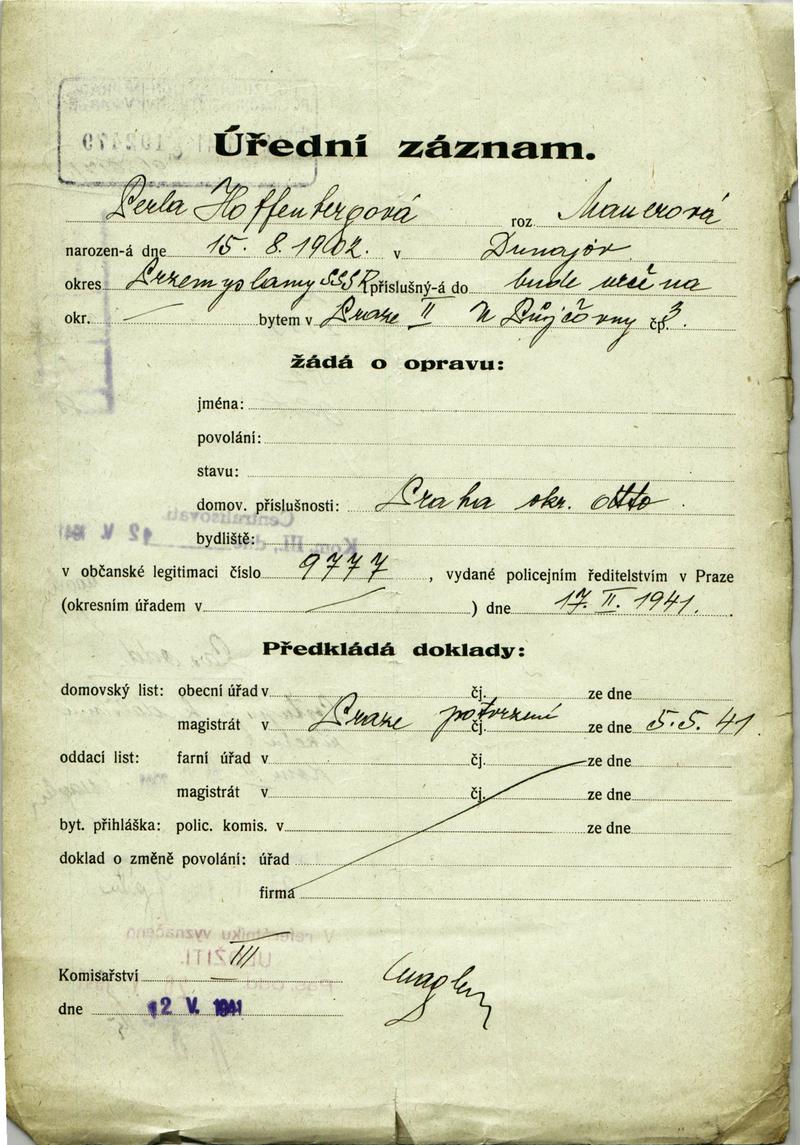 Úřední záznam.
Perla Hoffenbergová roz Mauerová
narozen-á dne 15. 8. 1902. v Dunajóv
okres Przemyslamy SSSR příslušný-á do bude určena
okr. — bytem v Praze II U Půjčovny čp. 3.
žádá o opravu:
jména:
povolání:
stavu:
domov. příslušnosti: Praha okr.
bydliště:
v občanské legitimaci číslo 9777, vydané policejním ředitelstvím v Praze
(okresním úřadem v — ) dne 17. II. 1941.
Předkládá doklady:
domovský list: obecní úřad v čj. ze dne
magistrát v Praze potvrzení čj. ze dne 5.5.41
oddací list: farní úřad v čj. ze dne
magistrát v čj. ze dne
byt. přihláška: polic. komis. v ze dne
doklad o změně povolání: úřad
firma
Komisařství III
dne 12 V. 1941